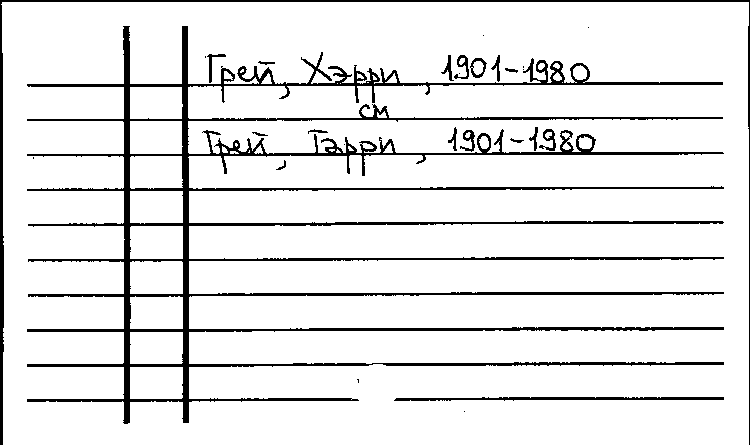 Грей, Хэрри, 1901-1980
см
Грей, Гэрри, 1901-1980